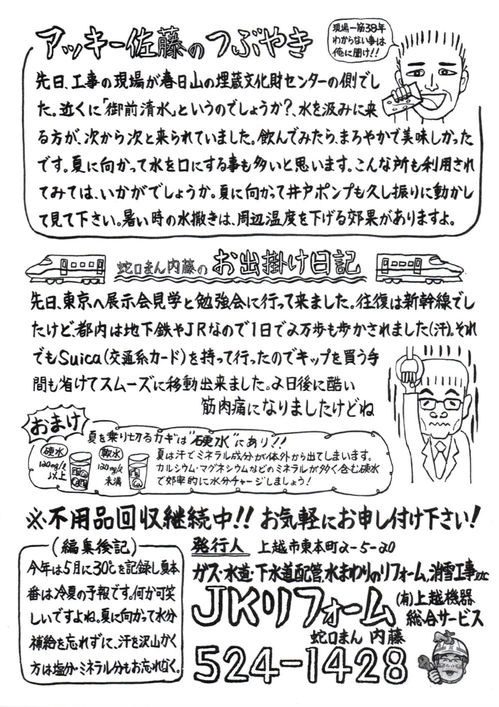 アッキー佐藤のつぶやき
現場一筋38年
わからない事は
俺に聞け!!
先日、工事の現場が春日山の埋蔵文化財センターの側でし
た。近くに「御前清水」というのでしょうか?、水を汲みに来
る方が、次から次と来られていました。飲んでみたら、まろやかで美味しかった
です。夏に向かって水を口にする事も多いと思います。こんな所も利用され
てみては、いかがでしょうか。夏に向かって井戸ポンプも久し振りに動かし
て見て下さい。暑い時の水撒きは、周辺温度を下げる効果がありますよ。
蛇口まん内藤のお出掛け日記
先日、東京へ展示会見学と勉強会に行って来ました。往復は新幹線でし
たけど、都内は地下鉄やJRなので1日で2万歩も歩かされました(汗)。それ
でもSuica(交通系カード)を持って行ったのでキップを買う手
間も省けてスムーズに移動出来ました。2日後に酷い
筋肉痛になりましたけどね
おまけ
夏を乗り切るカギは"硬水"にあり!!
硬水
120mg/ℓ
以上
軟水
120mg/ℓ
未満
夏は汗でミネラル成分が体外から出てしまいます。
カルシウム・マグネシウムなどのミネラルが多く含む硬水
で効率的に水分チャージしましょう!
※不用品回収継続中!! お気軽にお申し付け下さい!
(編集後記)
今年は5月に30℃を記録し夏本
番は冷夏の予報です。何か可笑
しいですよね。夏に向かって水分
補給を忘れずに、汗を沢山かく
方は塩分・ミネラル分もお忘れなく。
発行人 上越市東本町2-5-20
ガス・水道・下水道配管、水まわりのリフォーム、消雪工事etc
JKリフォーム (有)上越機器
総合サービス
蛇口まん 内藤
524-1428